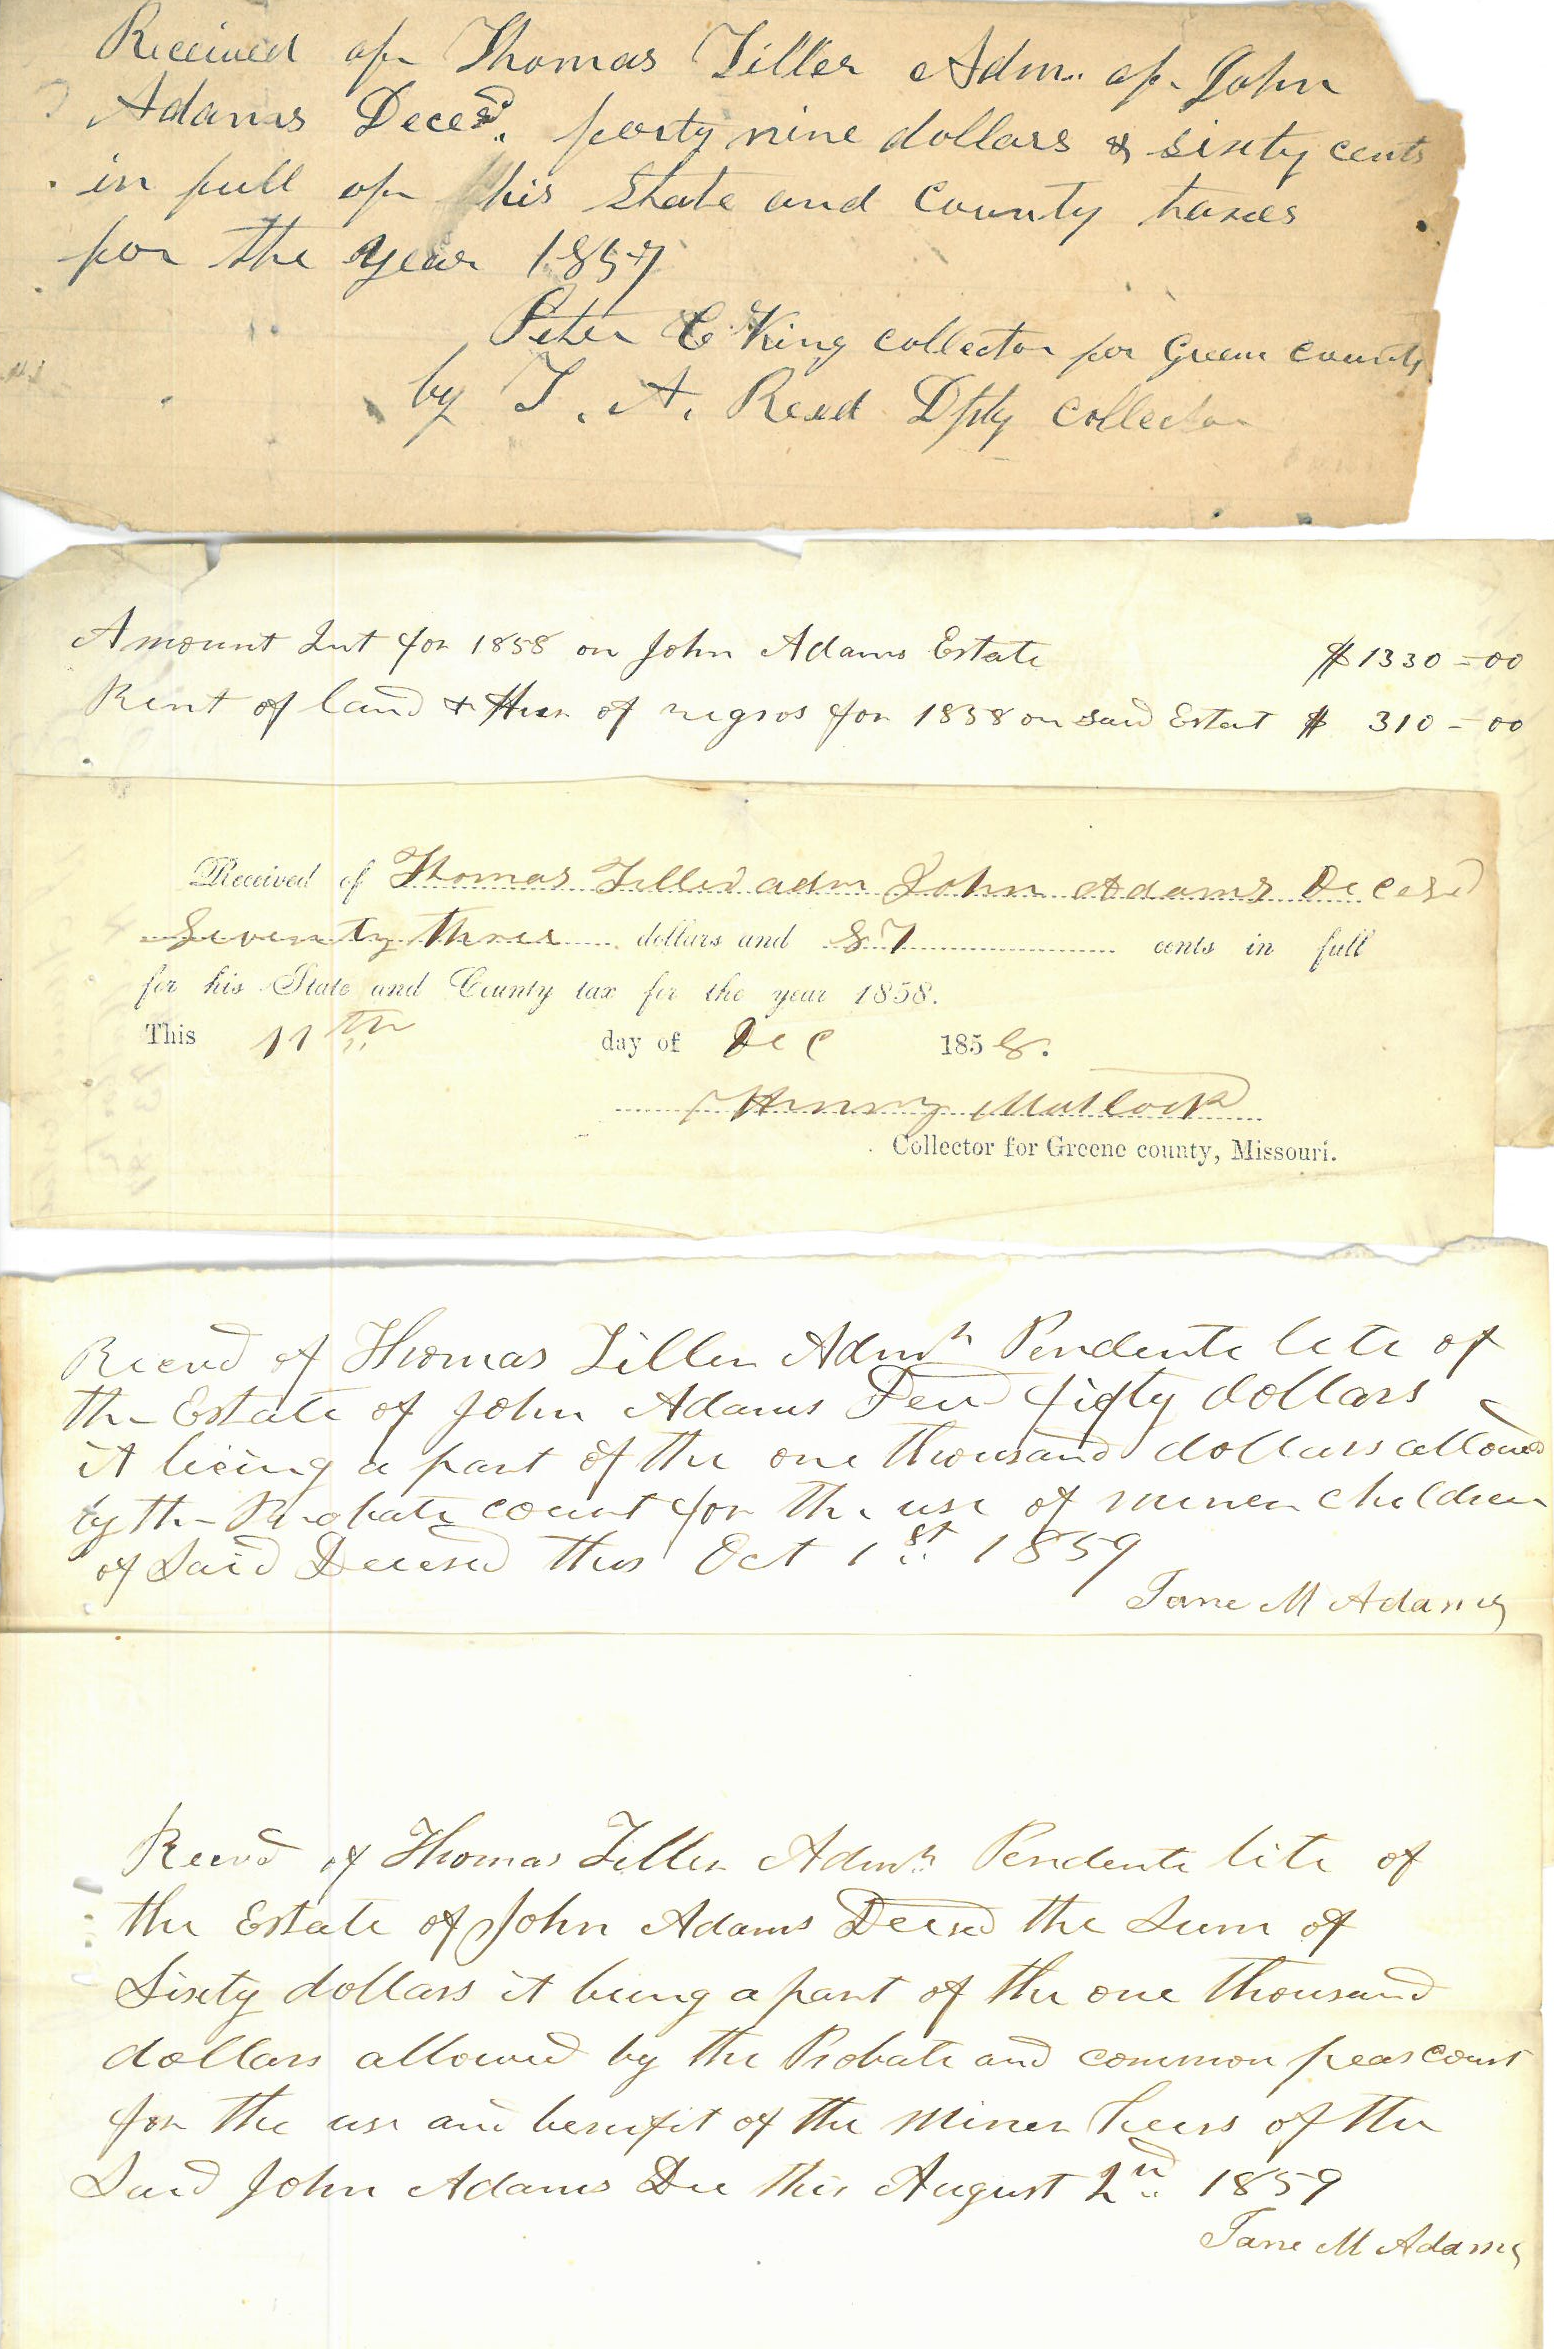 Received of Thomas Tiller Adm. of John
Adams Decesd. forty nine dollars & sixty cents
in full of his State and County taxes
for the year 1857
Peter C King collector for Green County
by T. A. Reed Dpty Collector
Amount Int for 1858 on John Adams Estate $1330=00
Rent of land & Hier of negros for 1858 on said Estat $ 310=00
Received of Thomas Tiller adm John Adams Decesd
Seventy three dollars and 87 cents in full
for his State and County tax for the year 1858.
This 11th day of Dec 1858.
Henry Matlock
Collector for Greene county, Missouri.
Recevd of Thomas Tiller Admr Pendente lite of
the Estate of John Adams Decd fifty dollars
it being a part of the one thousand dollars allowed
by the Probate court for the use of miner children
of Said Decesed this Oct 1st 1859
Jane M Adams
Recevd of Thomas Tiller Admr Pendente lite of
the Estate of John Adams Decesd the Sum of
Sixty dollars it being a part of the one thousand
dollars allowed by the Probate and common pleas court
for the use and benifit of the Miner heirs of the
Said John Adams Dec this August 2nd 1859
Jane M Adams